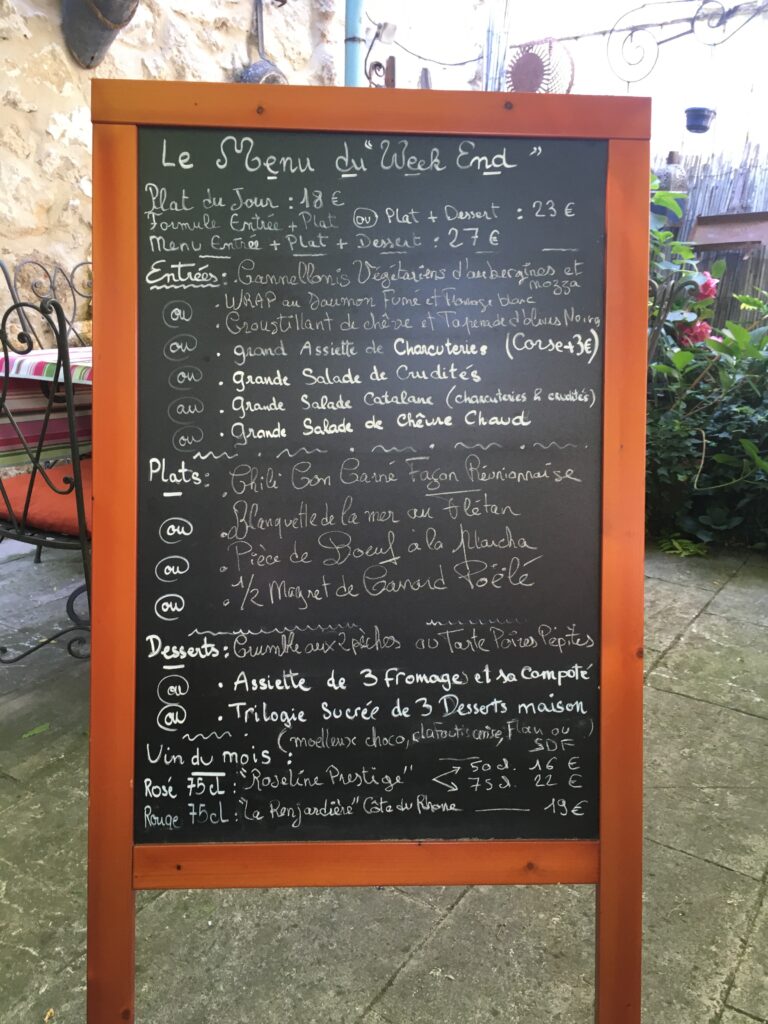 Le Menu du "Week End"
Plat du Jour : 18 €
Formule Entrée + Plat ou Plat + Dessert : 23 €
Menu Entrée + Plat + Dessert : 27 €
Entrées : Cannellonis Végétariens d'aubergines et
mozza
ou . WRAP au Saumon Fumé et Fromage blanc
. Croustillant de chêvre et Tapenade d'olives Noires
ou . grand Assiette de Charcuteries (Corse+3€)
ou . grande Salade de Crudités
au . Grande Salade Catalane (charcuteries & crudités)
ou . Grande Salade de Chêvre Chaud
Plats : . Chili Con Carné Façon Réunionnaise
ou . Blanquette de la mer au flétan
ou . Pièce de Boeuf à la Plancha
ou . 1/2 Magret de Canard Poêlé
Desserts : Crumble aux 2 pêches ou Tarte Poires Pépites
ou . Assiette de 3 fromages et sa Compoté
ou . Trilogie Sucrée de 3 Desserts maison
(moelleux choco, clafoutis cerise, Flan ou )
SDF
Vin du mois :
50cl. 16 €
Rosé 75cl : "Roseline Prestige" 75cl. 22 €
Rouge 75cl : "La Renjardière" Côte du Rhone 19 €